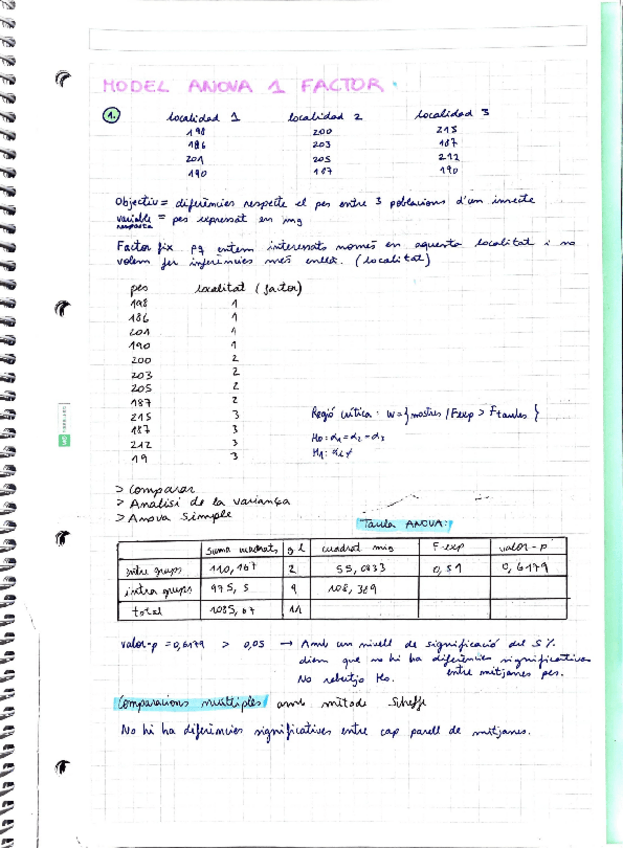 MODEL ANOVA 1 FACTOR.
1. localidad 1 localidad 2 localidad 3
198 200 215
186 203 187
201 205 212
190 187 190
Objectiu = diferències respecte el pes entre 3 poblacions d'un insecte
variable resposta = pes expressat en mg
Factor fix pq estem interessats només en aquesta localitat i no
volem fer inferències més enllà. (localitat)
pes localitat (factor)
198 1
186 1
201 1
190 1
200 2
203 2
205 2
187 2
215 3
187 3
212 3
19 3
Regió crítica: W = {mostres / Fexp > Ftaules}
H0: α1 = α2 = α3
H1: αi ≠
> Comparar
> Anàlisi de la variança
> Anova Simple
Taula ANOVA:
suma quadrats gl quadrat mig F-exp valor-p
entre grups 110,167 2 55,0833 0,51 0,6179
intra grups 975,5 9 108,389
total 1085,67 11
valor-p = 0,6179 > 0,05 → Amb un nivell de significació del 5%
diem que no hi ha diferències significatives
entre mitjanes pes.
No rebutjo H0.
Comparacions múltiples amb mètode Scheffe
No hi ha diferències significatives entre cap parell de mitjanes.